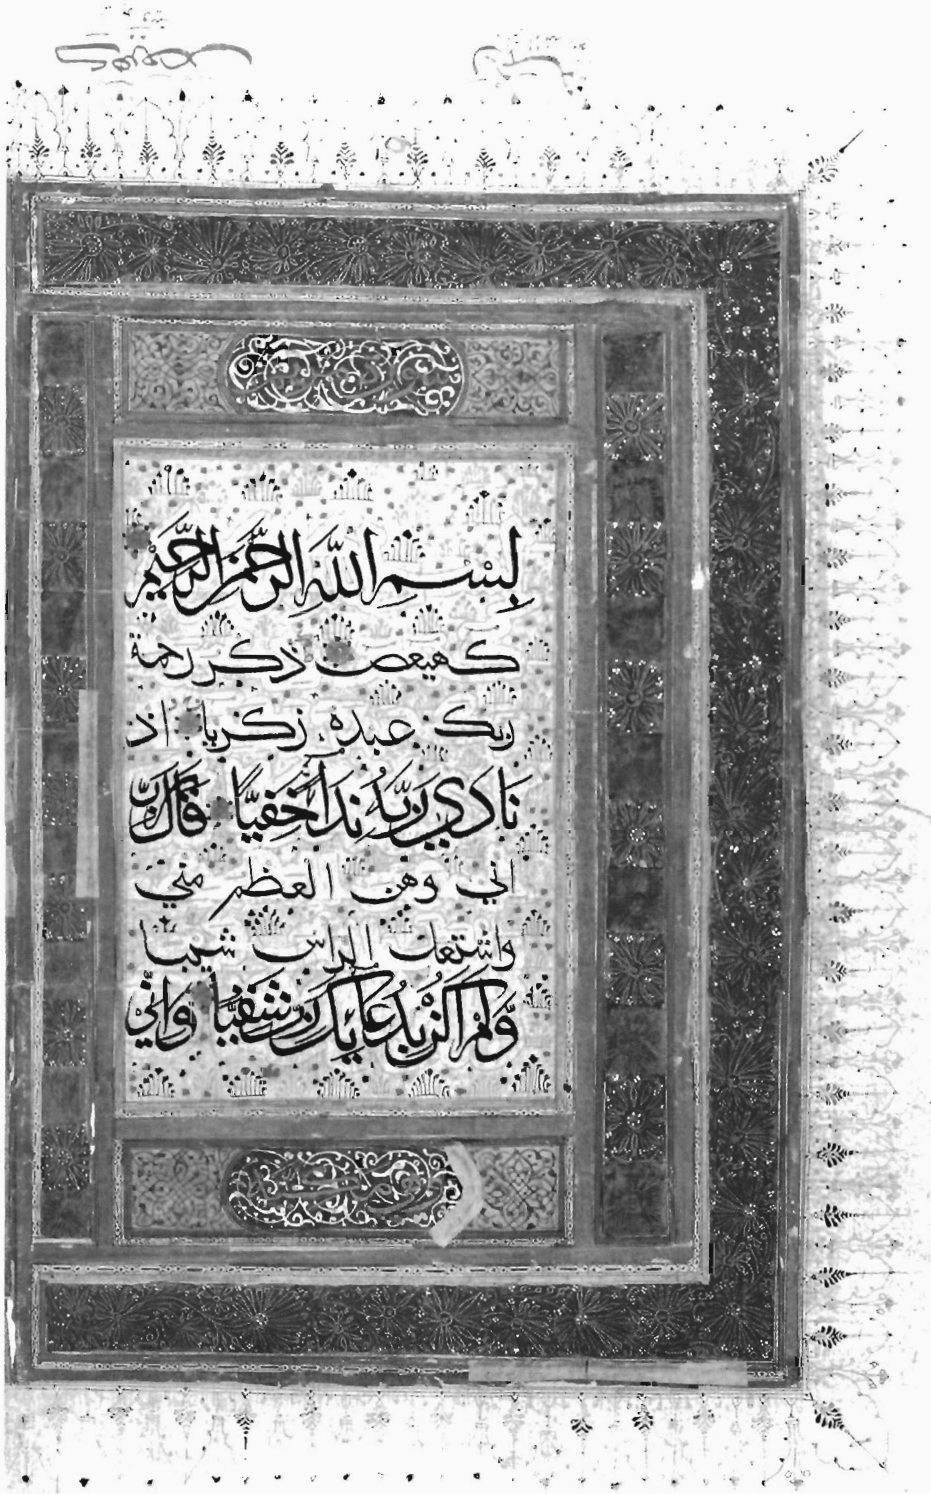 بِسْمِ اللَّهِ الرَّحْمَنِ الرَّحِيمِ
كهيعص ذكر رحمة
ربك عبده زكريا اذ
نَادَي رَبَّهُ نِدَاً خَفِيًّا قَالَ رَبِّ
اني وهن العظم مني
واشتعل الراس شيبا
وَّلَمْ اَكُنْ بِدُعَايِكَ رَبِّ شَقِيًّا وَاِنِّي